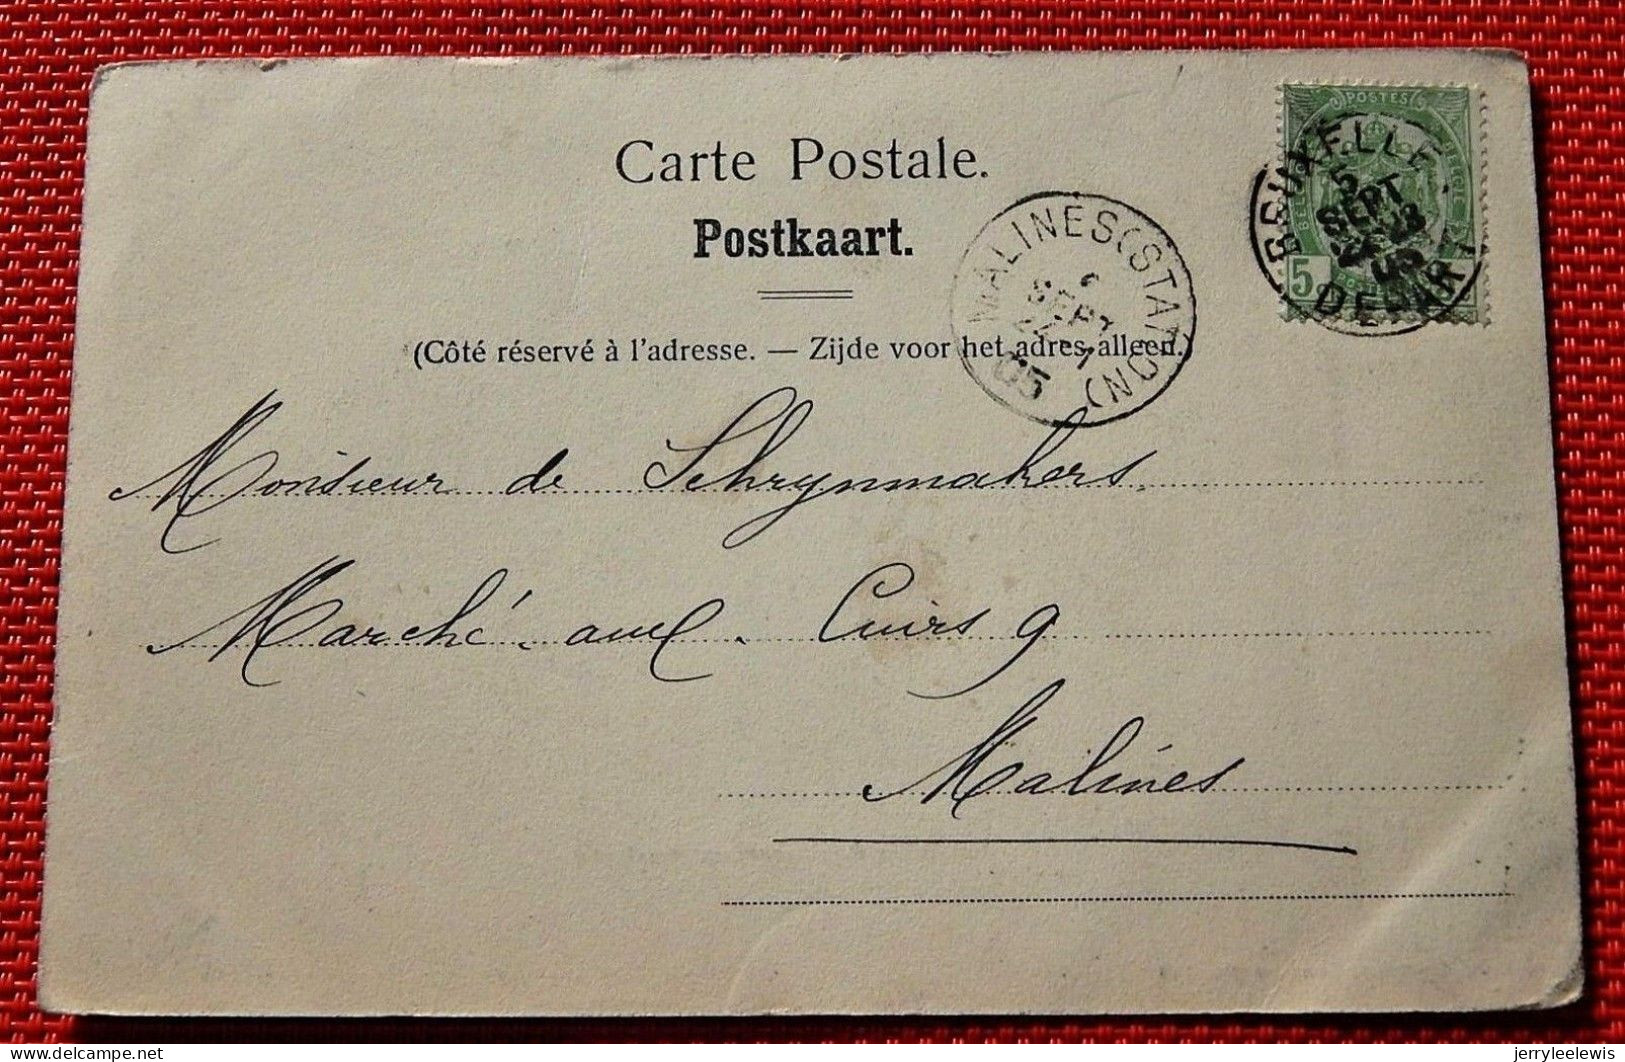 Carte Postale.
Postkaart.
(Côté réservé à l'adresse. — Zijde voor het adres alleen.)
POSTES
5
BRUXELLES
5
SEPT
DEPART
MALINES (STATION)
6
SEPT
7
05
Monsieur de Schrynmakers.
Marché aux Cuirs 9
Malines
delcampe.net
jerryleelewis